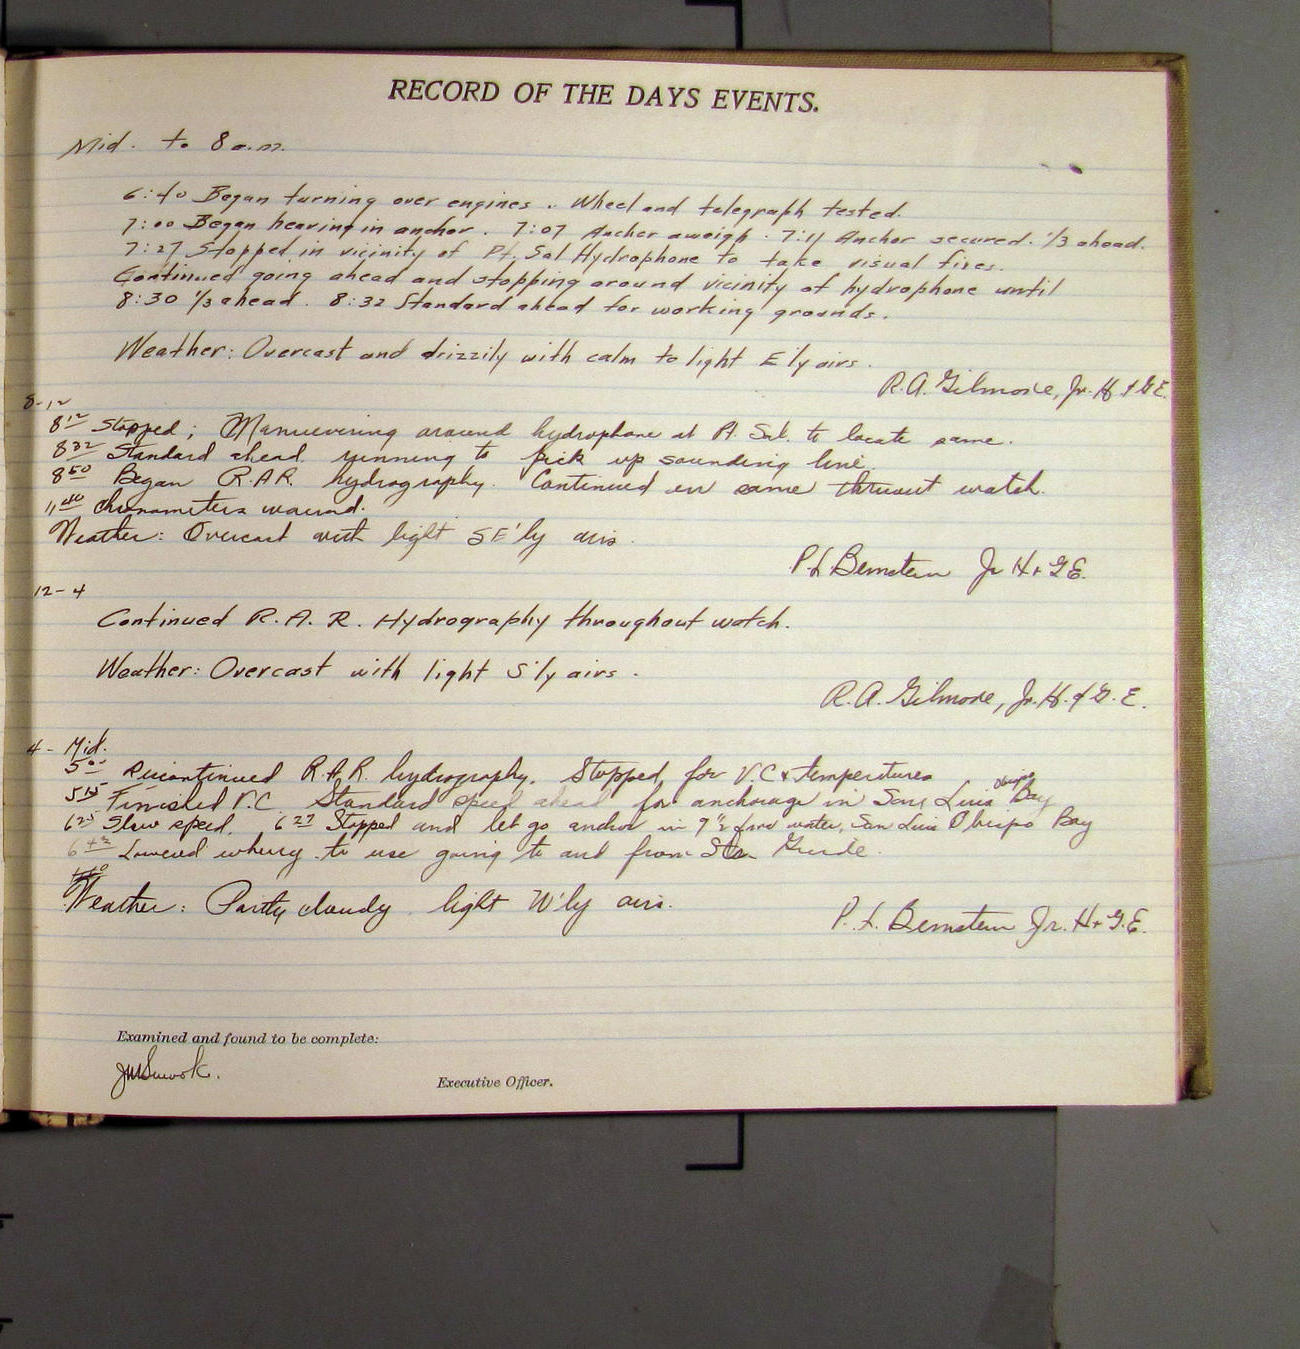 RECORD OF THE DAYS EVENTS.
Mid. to 8 a.m.
6:40 Began turning over engines. Wheel and telegraph tested.
7:00 Began heaving in anchor. 7:07 Ancher aweigh. 7:11 Anchor secured. 1/3 ahead.
7:27 Stopped in vicinity of Pt. Sal Hydrophone to take visual fixes.
Continued going ahead and stopping around vicinity of hydrophone until
8:30 1/3 ahead. 8:32 Standard ahead for working grounds.
Weather: Overcast and drizzily with calm to light E'ly airs.
R.A. Gilmore, Jr. H. & G.E.
8-12
8 12 Stopped; Manuevering around hydrophone at Pt. Sal. to locate same.
8 32 Standard ahead running to pick up sounding line.
8 50 Began R.A.R. hydrography. Continued on same thruout watch.
11 00 Chronometers wound.
Weather: Overcast with light SE'ly airs.
P.L. Bernstein Jr H + G E.
12-4
Continued R.A.R. Hydrography throughout watch.
Weather: Overcast with light S'ly airs.
R.A. Gilmore, Jr. H. & G. E.
4- Mid.
5 00 Discontinued R.A.R. hydrography. Stopped, for V.C + temperatures
5 15 Finished V.C. Standard speed ahead for anchorage in San Luis Obispo Bay
6 25 Slow speed. 6 27 Stopped and let go anchor in 9 1/2 water, San Luis Obispo Bay
6 Lowered wherry to use going to and from Sta. Guide.
Weather: Partly cloudy light W'ly airs.
P. L. Bernstein Jr. H + G.E.
Examined and found to be complete:
Executive Officer.